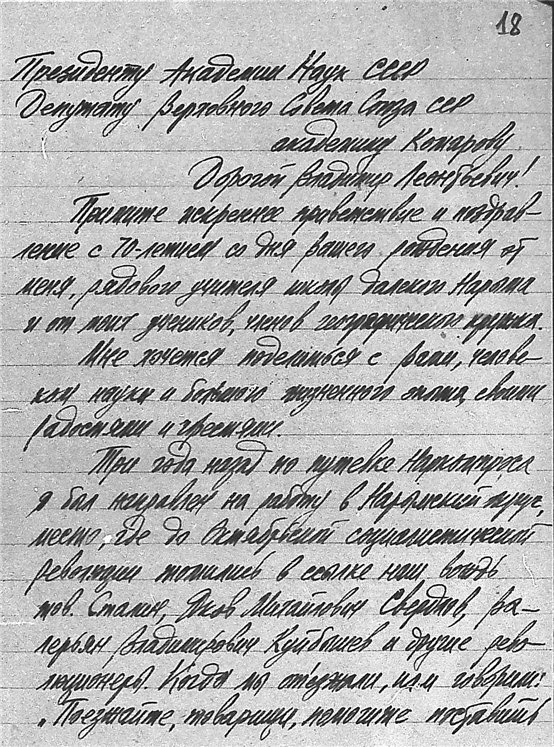 18
Президенту Академии Наук СССР
Депутату Верховного Совета Союза ССР
академику Комарову
Дорогой Владимир Леонтьевич!
Примите искреннее приветствие и поздрав-
ление с 70-летием со дня Вашего рождения от
меня, рядового учителя школы далекого Нарыма
и от моих учеников, членов географического кружка.
Мне хочется поделиться с Вами, челове-
ком науки и большого жизненного опыта, своими
радостями и горестями.
Три года назад по путевке Наркомпроса
я был направлен на работу в Нарымский округ,
место, где до Октябрьской социалистической
революции томились в ссылке наш вождь
тов. Сталин, Яков Михайлович Свердлов, Ва-
лерьян Владимирович Куйбышев и другие рево-
люционеры. Когда мы отъезжали, нам говорили:
"Поезжайте, товарищи, помогите поставить